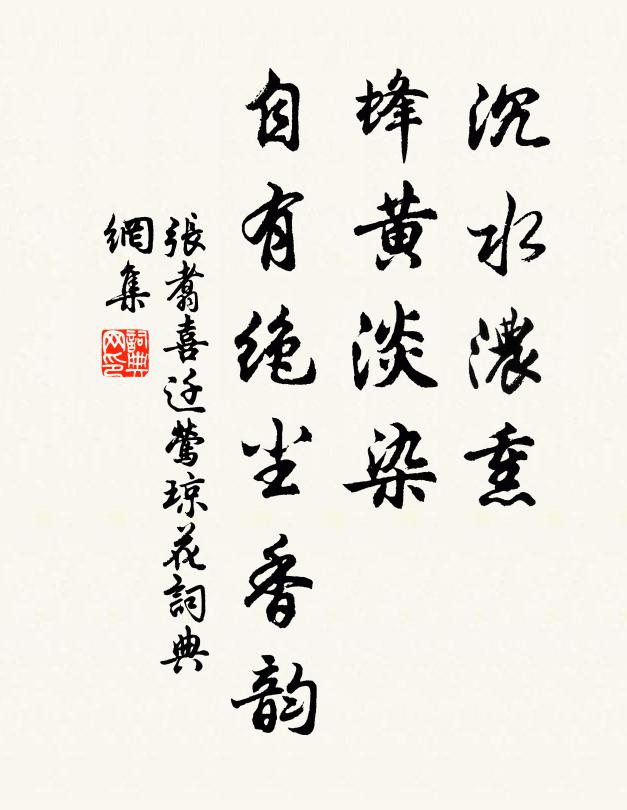 沉水濃熏
蜂黄淡染
自有绝尘香韵
張翥喜迁鶯琼花詞典
網集
詞典网印